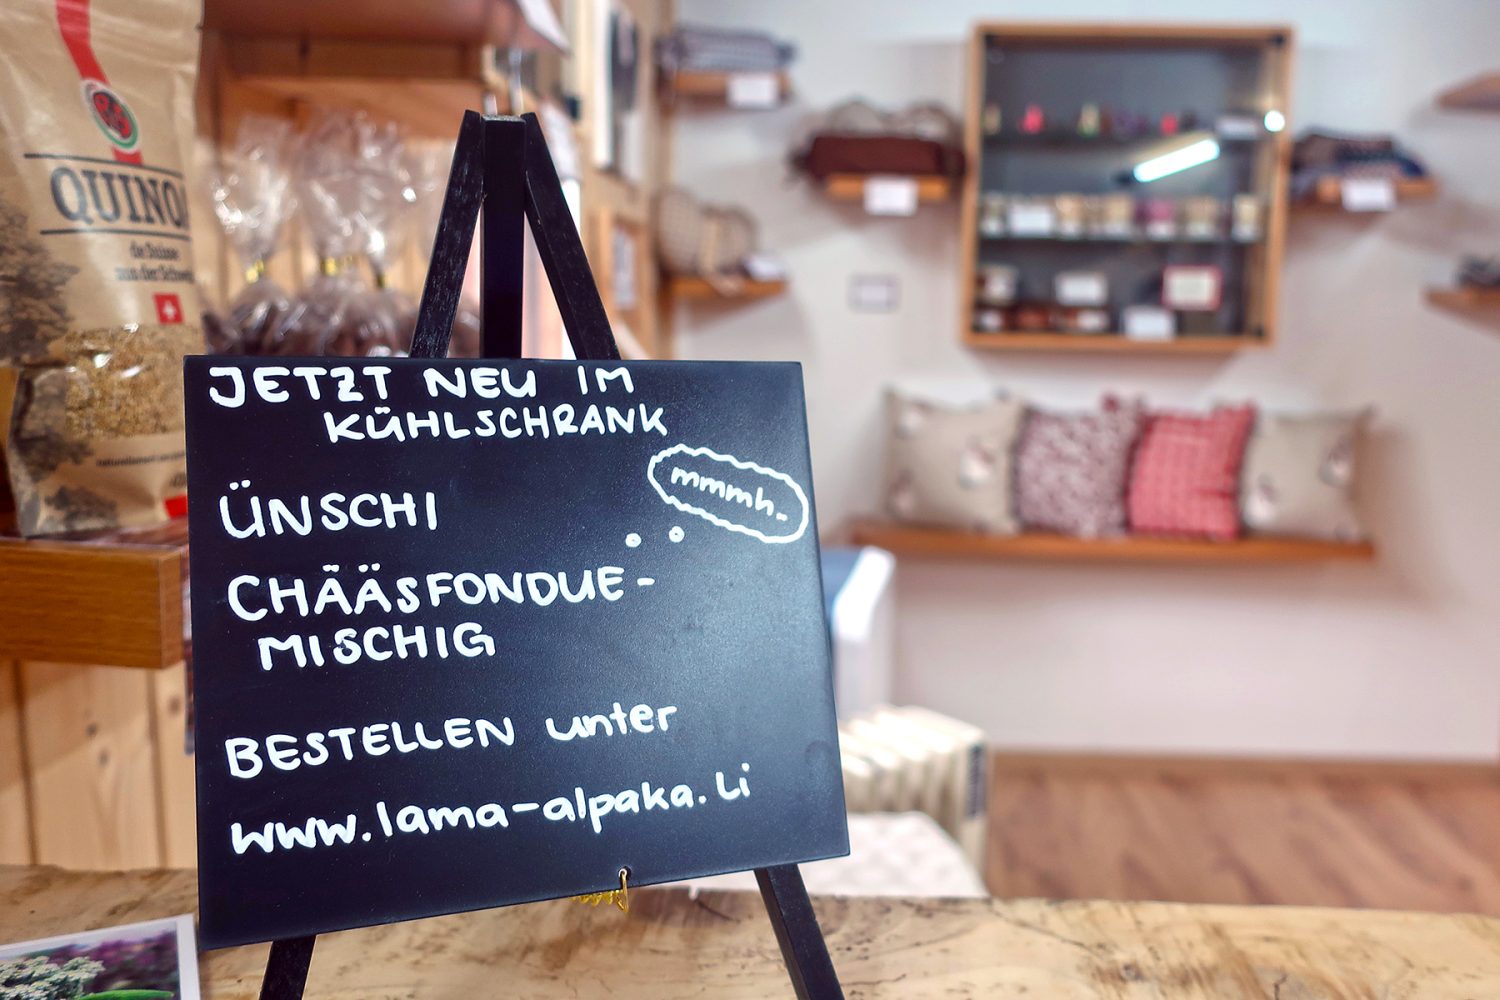 QUINO
de Suisse
aus der Schweiz
JETZT NEU IM
KÜHLSCHRANK
mmmh..
ÜNSCHI
CHÄÄSFONDUE-
MISCHIG
BESTELLEN unter
www.lama-alpaka.li